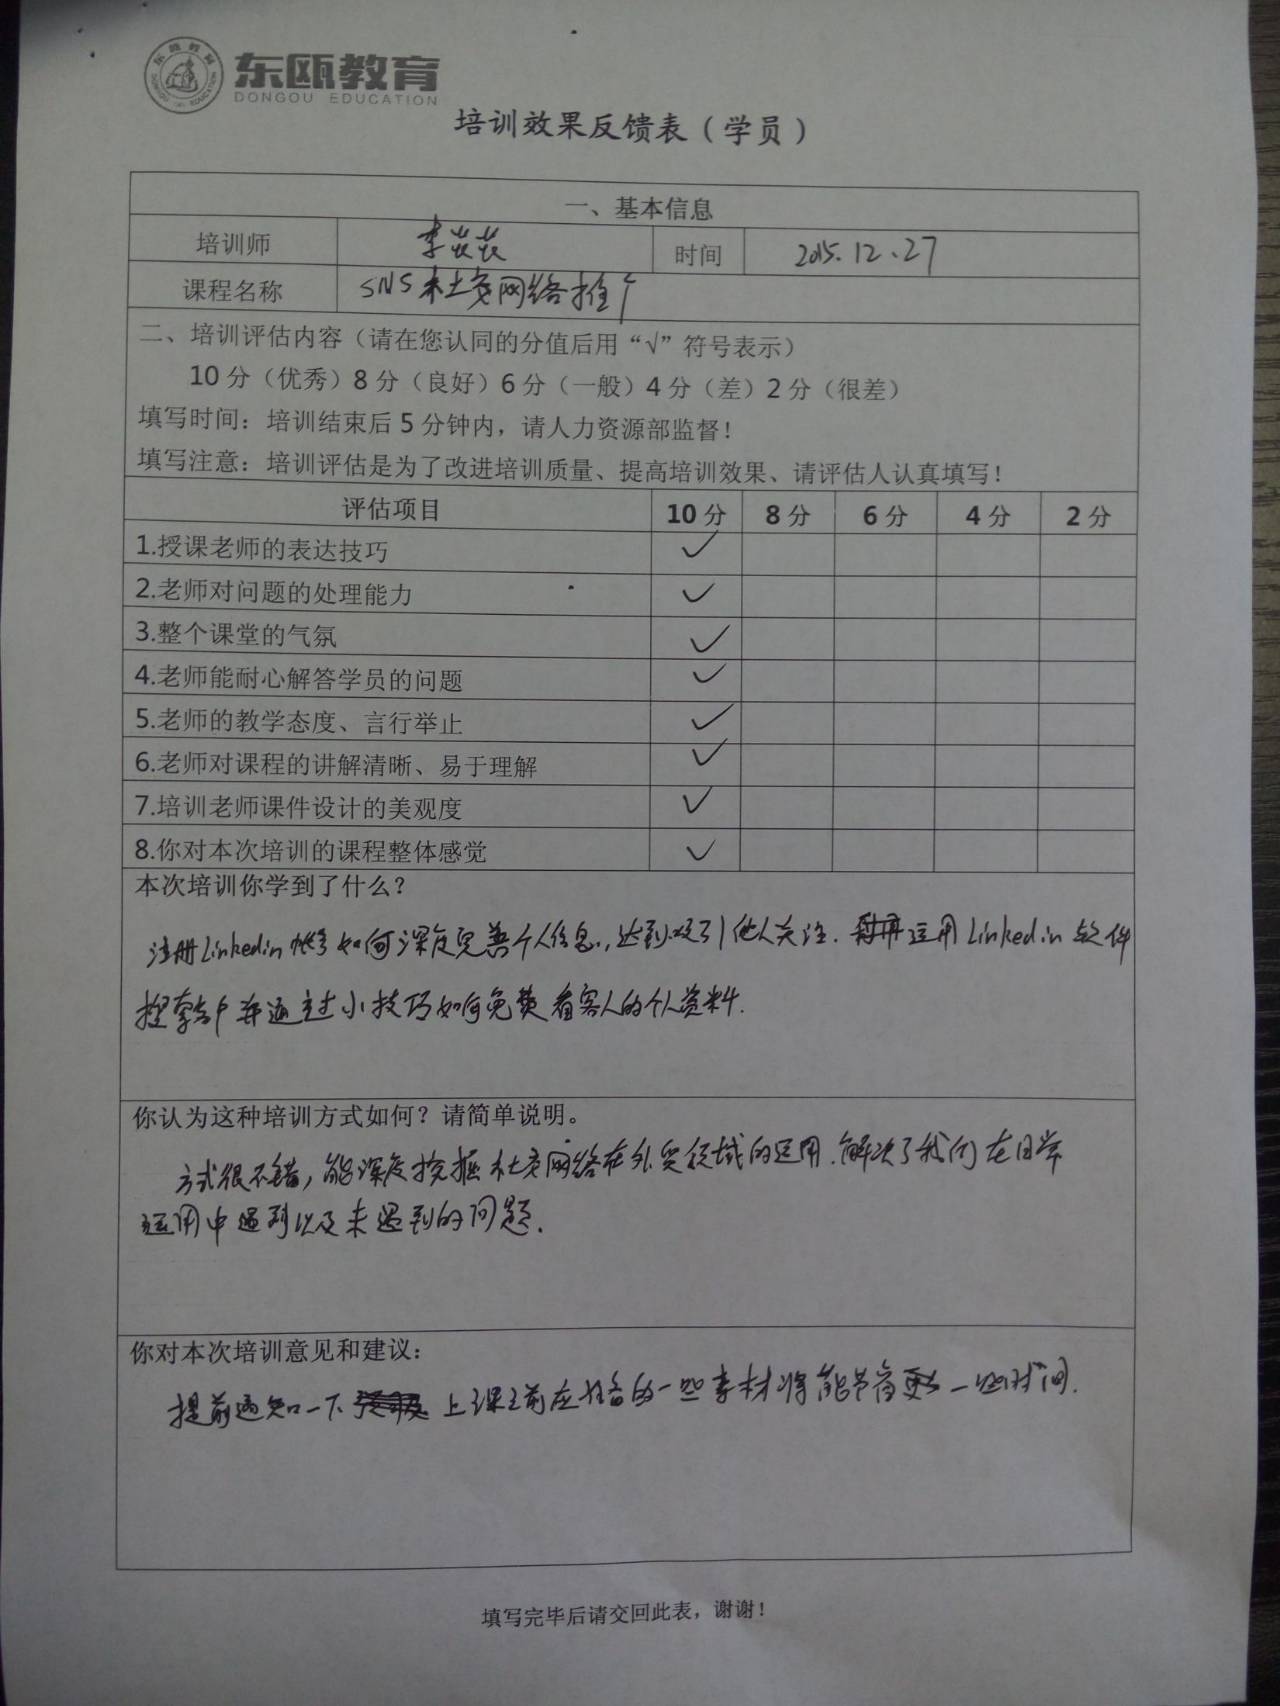 东瓯教育
DONGOU EDUCATION
培训效果反馈表（学员）
一、基本信息
培训师 李苂苂 时间 2015.12.27
课程名称 SNS社交网络推广
二、培训评估内容（请在您认同的分值后用“√”符号表示）
10分（优秀）8分（良好）6分（一般）4分（差）2分（很差）
填写时间：培训结束后5分钟内，请人力资源部监督！
填写注意：培训评估是为了改进培训质量、提高培训效果、请评估人认真填写！
评估项目 10分 8分 6分 4分 2分
1.授课老师的表达技巧 ✓
2.老师对问题的处理能力 ✓
3.整个课堂的气氛 ✓
4.老师能耐心解答学员的问题 ✓
5.老师的教学态度、言行举止 ✓
6.老师对课程的讲解清晰、易于理解 ✓
7.培训老师课件设计的美观度 ✓
8.你对本次培训的课程整体感觉 ✓
本次培训你学到了什么？
注册Linkedin帐号如何深度完善个人信息，达到吸引他人关注. 运用Linkedin软件
搜索客户并通过小技巧如何免费看客人的个人资料.
你认为这种培训方式如何？请简单说明。
方式很不错，能深度挖掘社交网络在外贸领域的运用.解决了我们在日常
运用中遇到以及未遇到的问题.
你对本次培训意见和建议：
提前通知一下 上课之前应准备的一些素材将能节省更多一些时间.
填写完毕后请交回此表，谢谢！